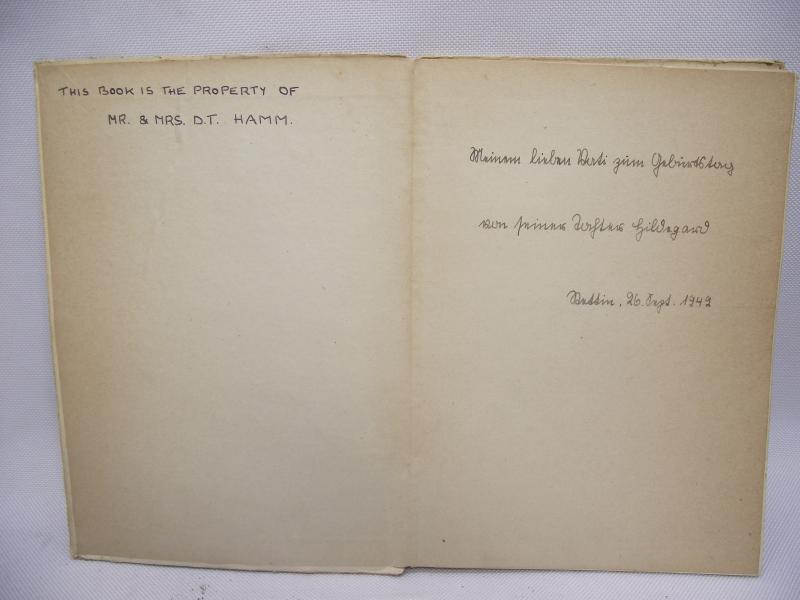 THIS BOOK IS THE PROPERTY OF
MR. & MRS. D.T. HAMM.
Meinem lieben Vati zum Geburtstag
von seiner Tochter Hildegard
Wettin, 26. Sept. 1949